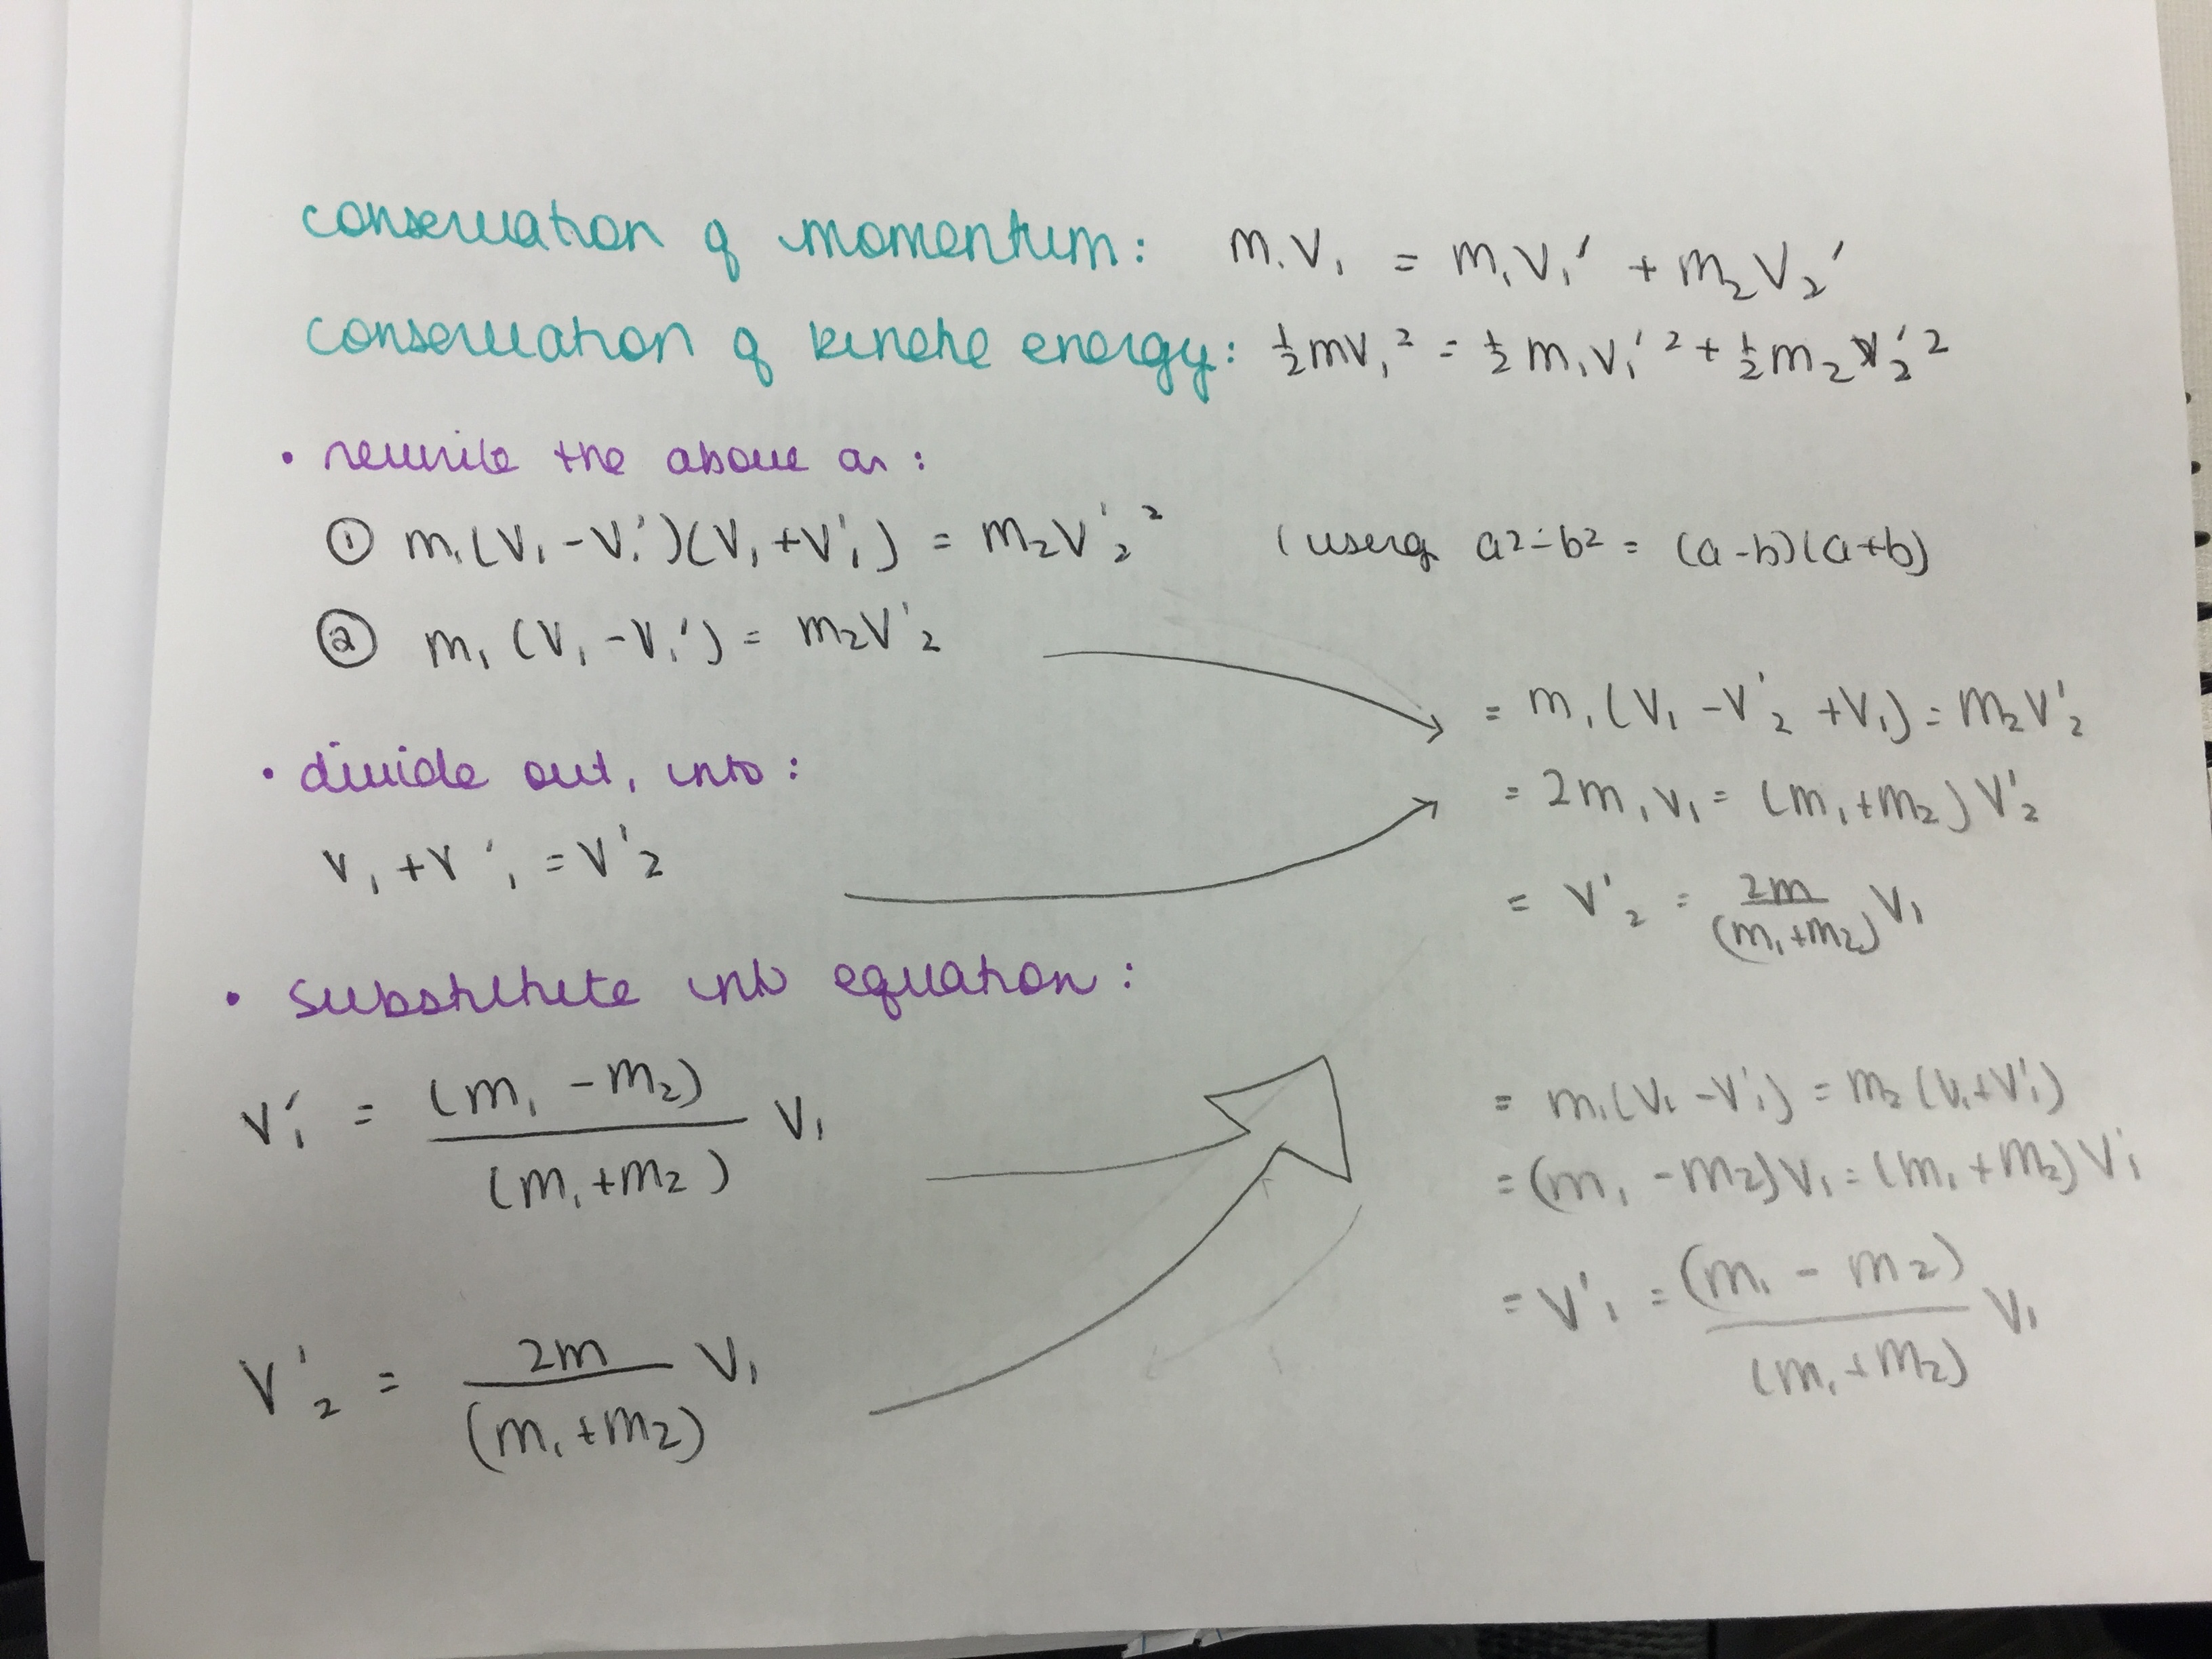 conservation of momentum: m₁v₁ = m₁v₁' + m₂v₂'
conservation of kinetic energy: ½mv₁² = ½m₁v₁'² + ½m₂v₂'²
• rewrite the above as:
① m₁(v₁ - v₁')(v₁ + v'₁) = m₂v'₂² (using a² - b² = (a-b)(a+b)
② m₁(v₁ - v₁') = m₂v'₂
• divide out, into:
v₁ + v'₁ = v'₂
= m₁(v₁ - v'₂ + v₁) = m₂v'₂
= 2m₁v₁ = (m₁+m₂)v'₂
= v'₂ = 2m/(m₁+m₂) v₁
• substitute into equation:
v'₁ = (m₁ - m₂)/(m₁+m₂) v₁
v'₂ = 2m/(m₁+m₂) v₁
= m₁(v₁ - v'₁) = m₂(v₁+v'₁)
= (m₁ - m₂)v₁ = (m₁ + m₂)v'₁
= v'₁ = (m₁ - m₂)/(m₁+m₂) v₁